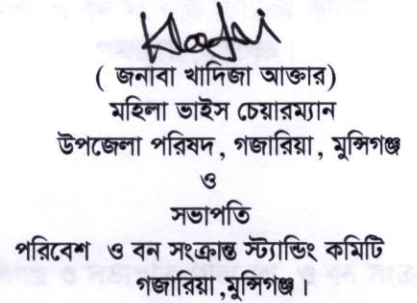 ( জনাবা খাদিজা আক্তার)
মহিলা ভাইস চেয়ারম্যান
উপজেলা পরিষদ, গজারিয়া, মুন্সিগঞ্জ
ও
সভাপতি
পরিবেশ ও বন সংক্রান্ত স্ট্যান্ডিং কমিটি
গজারিয়া,মুন্সিগঞ্জ।